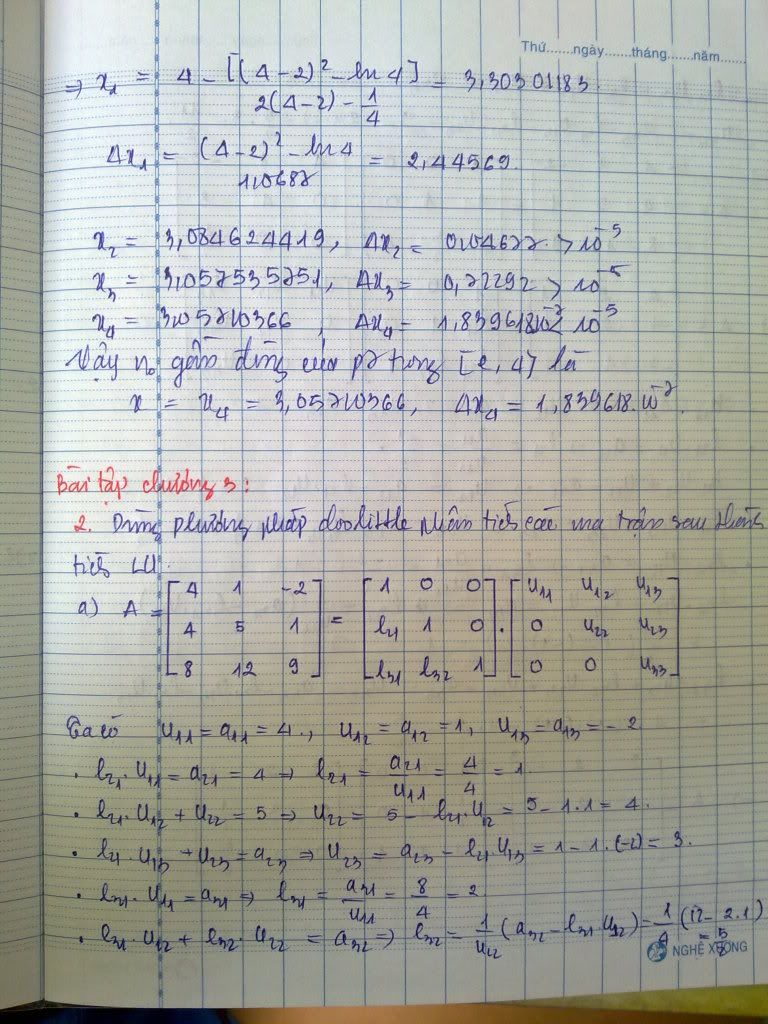 Thứ.......ngày.......tháng.......năm.......
⇒ x₁ = 4 - [(4-2)² - ln 4] / (2(4-2) - 1/4) = 3,30301183.
Δx₁ = ((4-2)² - ln 4) / 1,0687 = 2,44569.
x₂ = 3,084624419, Δx₂ = 0,04677 > 10⁻⁵
x₃ = 3,057535751, Δx₃ = 0,72292 > 10⁻⁵
x₄ = 3,05710366, Δx₄ = 1,839618.10⁻⁷ < 10⁻⁵
Vậy no gần đúng của pt trong [e, 4] là
x = x₄ = 3,05710366, Δx₄ = 1,839618.10⁻⁷.
Bài tập chương 3:
2. Dùng phương pháp doolittle phân tích các ma trận sau thành
tích LU.
a) A = [4 1 -2; 4 5 1; 8 12 9] = [1 0 0; l₂₁ 1 0; l₃₁ l₃₂ 1] . [u₁₁ u₁₂ u₁₃; 0 u₂₂ u₂₃; 0 0 u₃₃]
Ta có u₁₁ = a₁₁ = 4, u₁₂ = a₁₂ = 1, u₁₃ = a₁₃ = -2
• l₂₁.u₁₁ = a₂₁ = 4 ⇒ l₂₁ = a₂₁/u₁₁ = 4/4 = 1
• l₂₁.u₁₂ + u₂₂ = 5 ⇒ u₂₂ = 5 - l₂₁.u₁₂ = 5 - 1.1 = 4.
• l₂₁.u₁₃ + u₂₃ = a₂₃ ⇒ u₂₃ = a₂₃ - l₂₁.u₁₃ = 1 - 1.(-2) = 3.
• l₃₁.u₁₁ = a₃₁ ⇒ l₃₁ = a₃₁/u₁₁ = 8/4 = 2
• l₃₁.u₁₂ + l₃₂.u₂₂ = a₃₂ ⇒ l₃₂ = 1/u₂₂ (a₃₂ - l₃₁.u₁₂) = 1/4 (12 - 2.1)
NGHỆ XƯƠNG